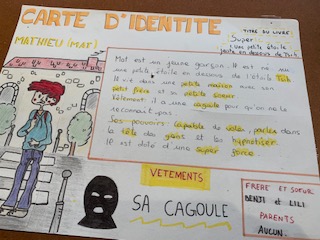 CARTE D'IDENTITÉ
TITRE DU LIVRE:
Super
1 une petite étoile
juste en dessous de
MATHIEU (MAT)
Mat est un jeune garçon. Il est né sur
une petite étoile en dessous de l'étoile
Il vit dans une petite maison avec son
petit frère et sa petite soeur
Vêtement: il a une cagoule pour qu'on ne le
reconnait pas.
Ses pouvoirs: Capable de voler, parler dans
la tête des gens et les hypnotiser.
Il est doté d'une super force.
VETEMENTS
SA CAGOULE
FRERE ET SOEUR
BENJI et LILI
PARENTS
AUCUN.